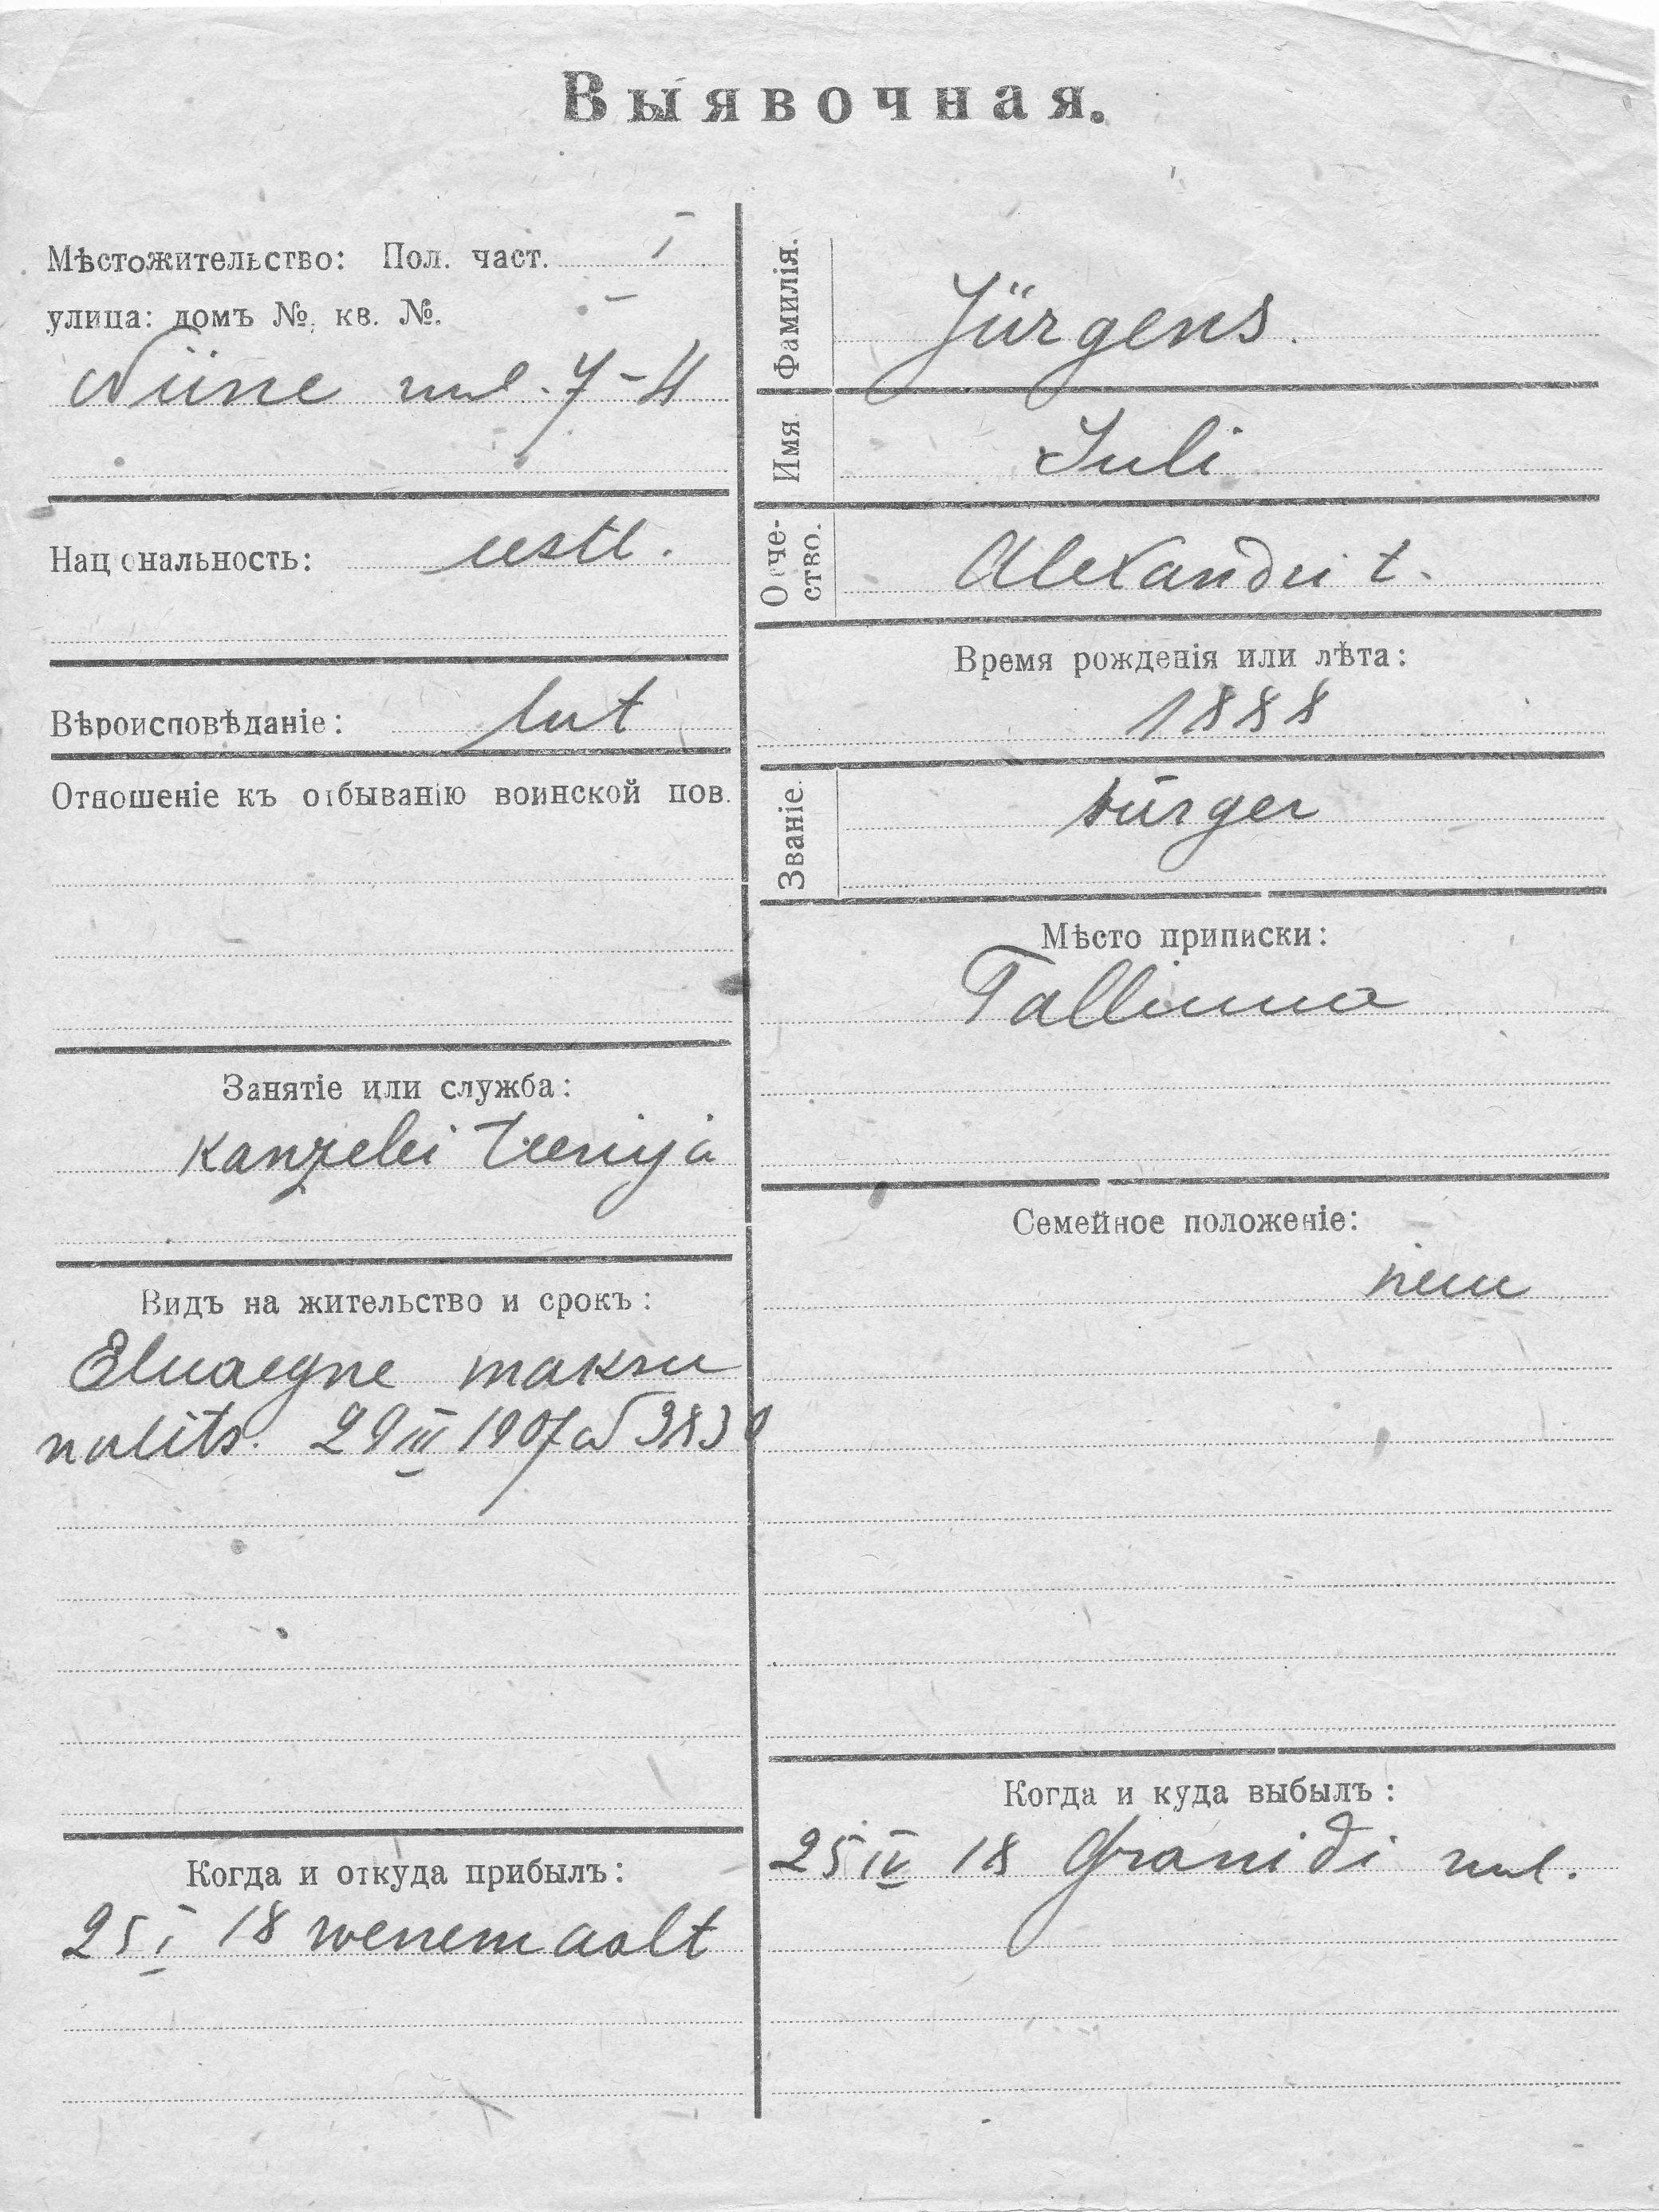 Выявочная.
Мѣстожительство: Пол. част. I
улица: домъ №, кв. №.
Niine uul. 7-4
Національность: eestl.
Вѣроисповѣданіе: lut
Отношеніе къ отбыванію воинской пов.
Занятіе или служба:
Kanzelei teenija
Видъ на жительство и срокъ:
Eluaegne maksu
valits. 29 III 1907 a №
Когда и откуда прибылъ:
25 I 18 wenemaalt
Фамилія. Jürgens.
Имя Juli
Отчество. Alexandri t.
Время рожденія или лѣта:
1888
Званіе. bürger
Мѣсто приписки:
Tallinna
Семейное положеніе:
neiu
Когда и куда выбылъ:
25 IV 18 Graniidi uul.